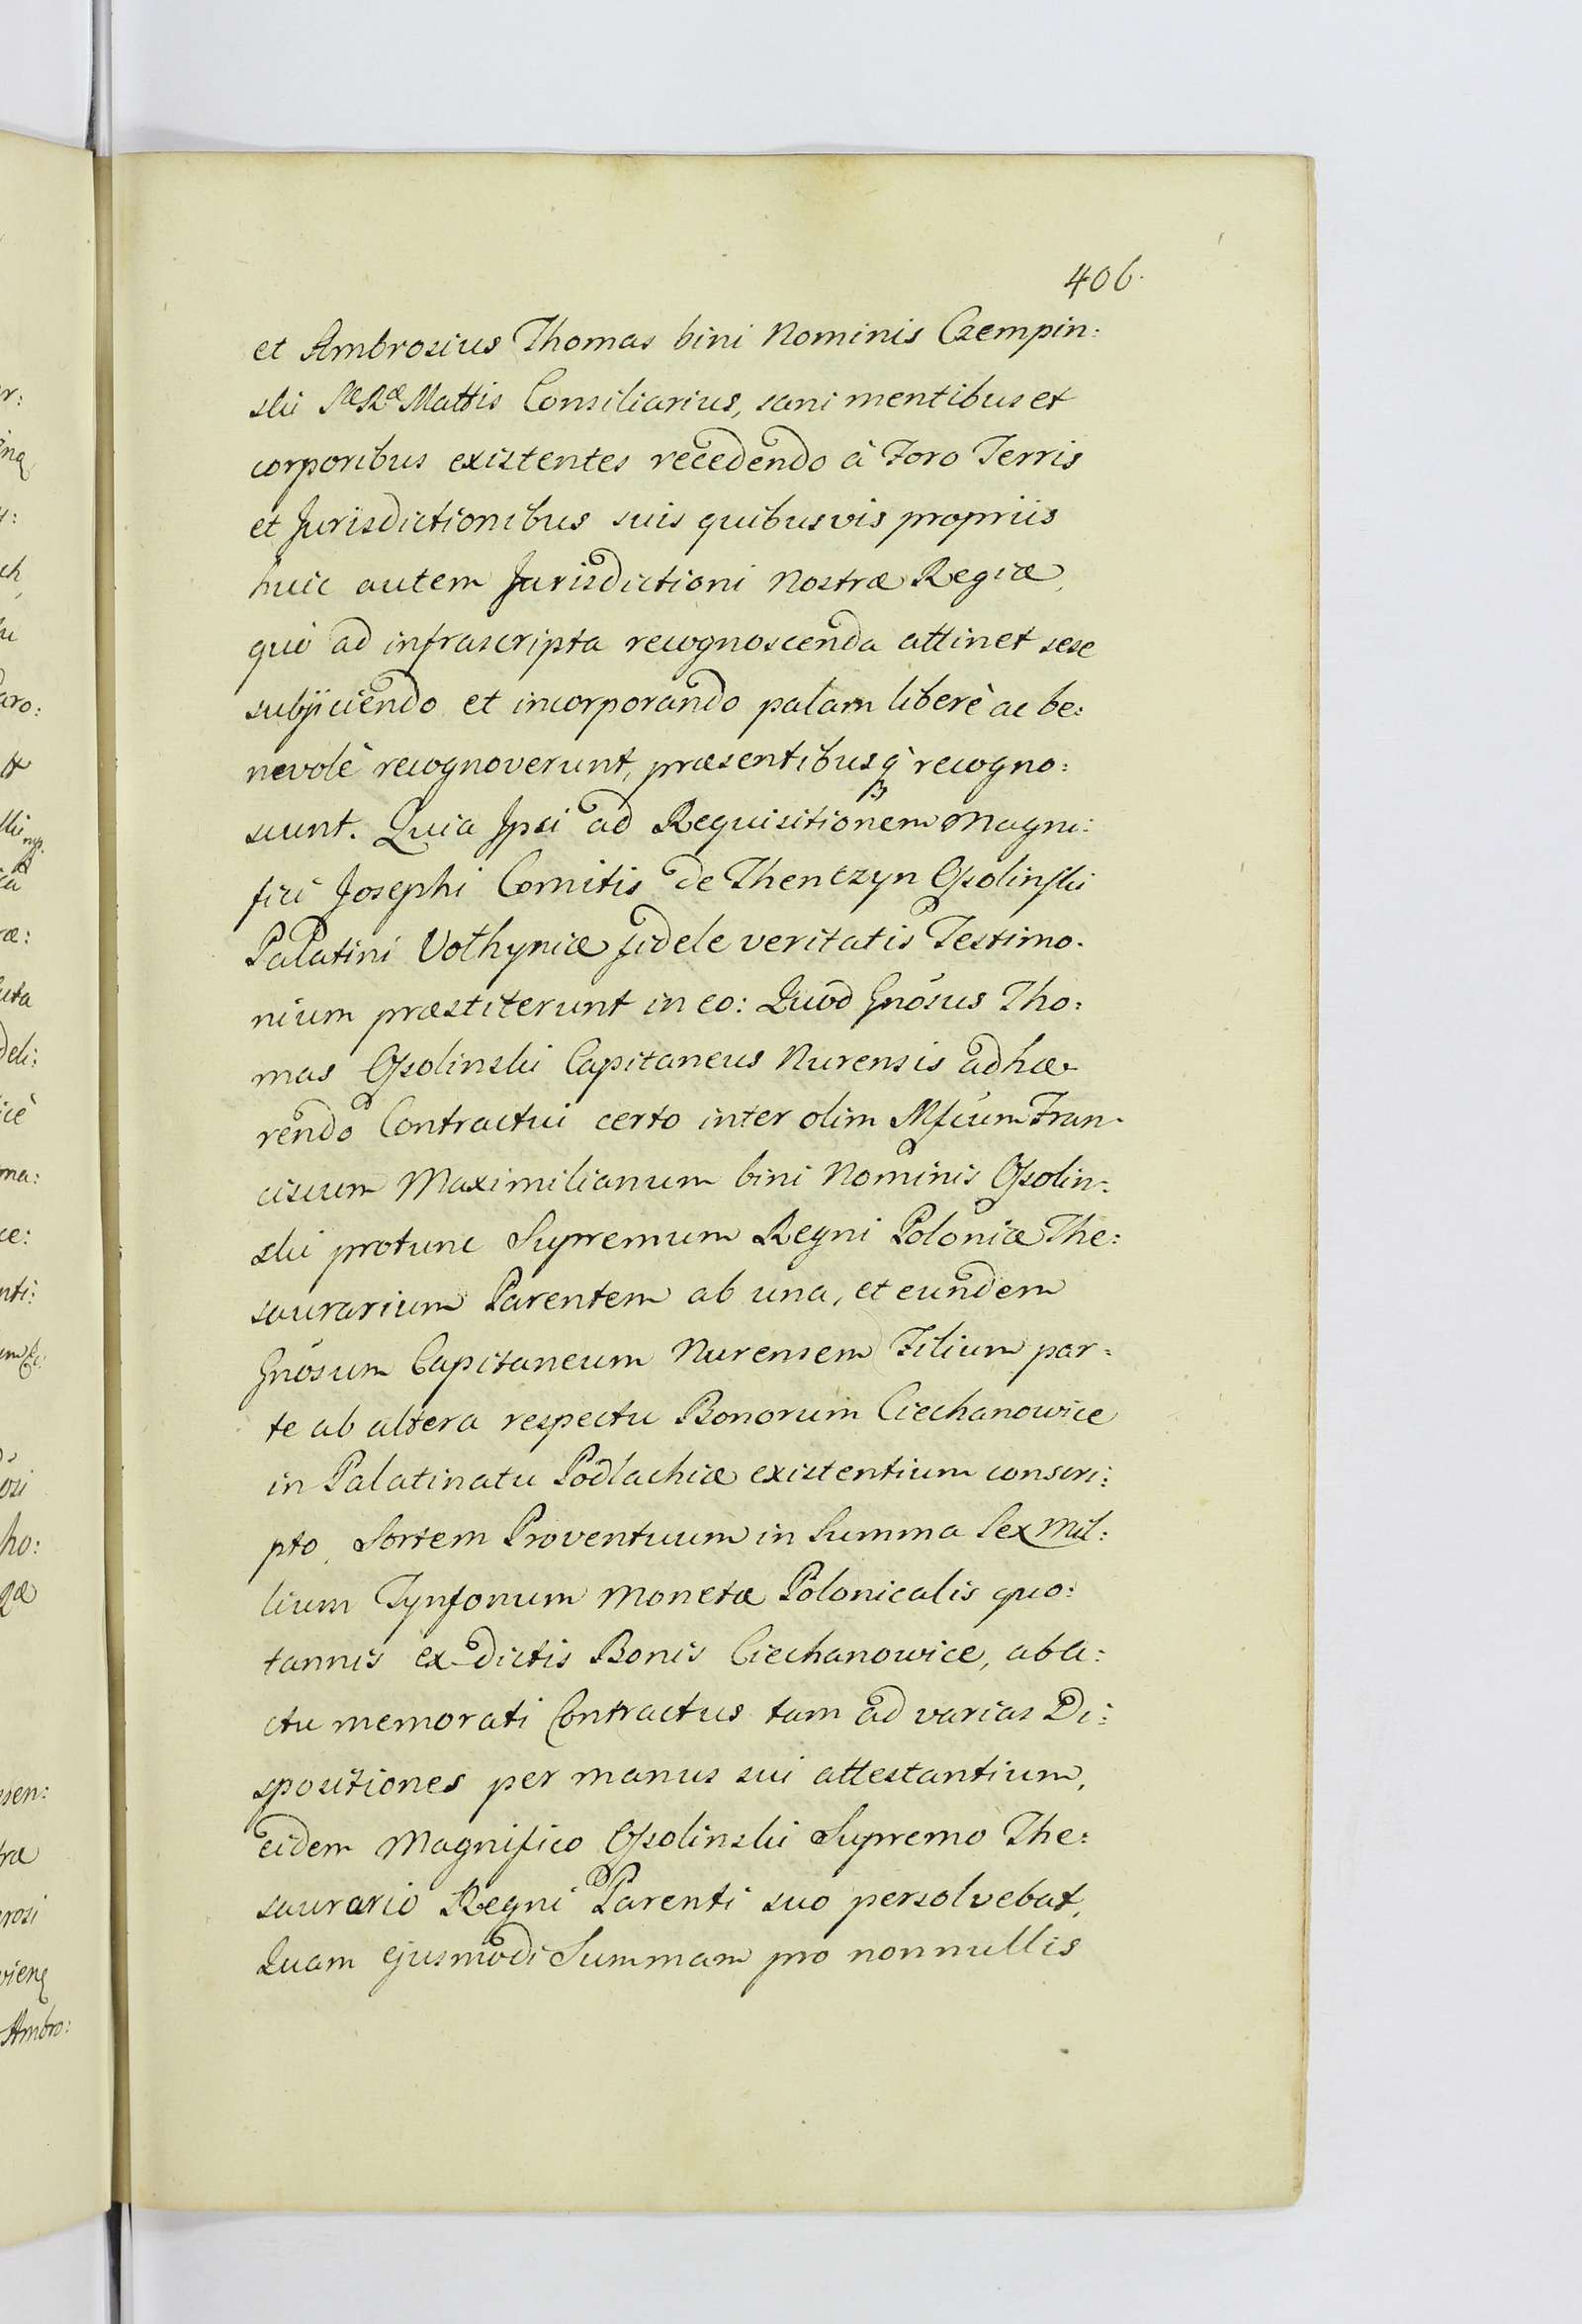 406.
et Ambrosius Thomas bini Nominis Czempin:
ski Sæ Ræ Mattis Consiliarius, sani mentibus et
corporibus existentes recedendo à Foro Terris
et Jurisdictionibus suis quibusvis propriis
huic autem Jurisdictioni Nostræ Regiæ,
quò ad infrascripta recognoscenda attinet sese
subjiciendo et incorporando palam liberè ac be:
nevolè recognoverunt, præsentibusq̀ recogno:
scunt. Quia Ipsi ad Requisitionem Magni:
fici Josephi Comitis de Thentzyn Ossolinski
Palatini Volhyniæ fidele veritatis Testimo-
nium præstiterunt in eo: Quod Gnõsus Tho:
mas Ossolinski Capitaneus Nurensis adhæ-
rendo Contractui certo inter olim Mfcum Fran-
ciscum Maximilianum bini Nominis Ossolin:
ski protunc Supremum Regni Poloniæ The:
saurarium Parentem ab una, et eundem
Gnõsum Capitaneum Nurensem Filium par:
te ab altera respectu Bonorum Ciechanowice
in Palatinatu Podlachiæ existentium conscri:
pto, Sortem Proventuum in Summa Sex Mil:
lium Tynfonum Monetæ Polonicalis quo:
tannis ex dictis Bonis Ciechanowice, ab a:
ctu memorati Contractus tam ad varias Di:
spositiones per manus sui attestantium,
eidem Magnifico Ossolinski Supremo The:
saurario Regni Parenti suo persolvebat,
Quam ejusmodi Summam pro nonnullis